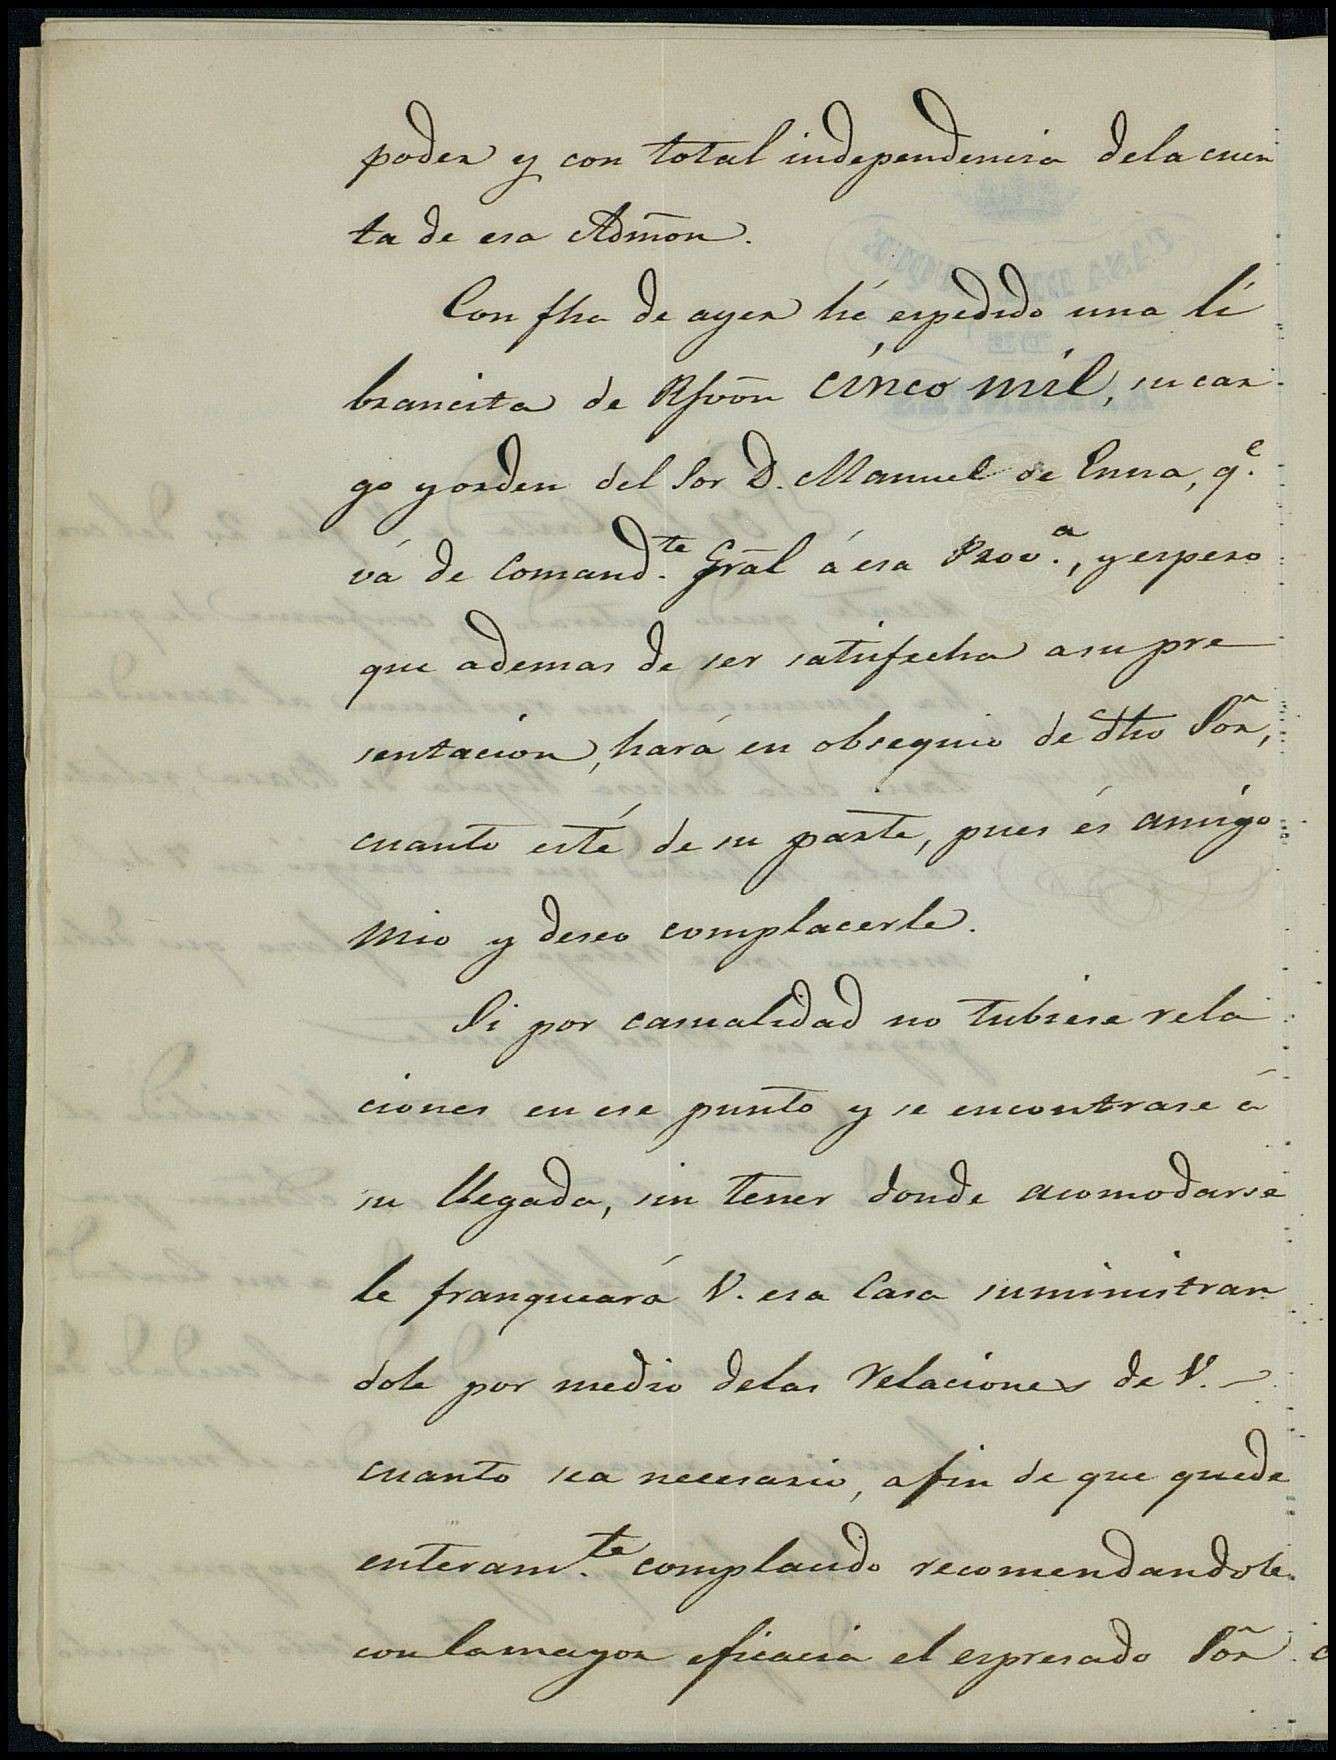 poder y con total independencia dela cuen
ta de esa Admōn.
Con fha de ayer hé espedido una li
brancita de Rsvōn cinco mil, su car
go y orden del Sor D. Manuel de Enna, q.e
vá de Comand.te Grāl á esa Prov.a, y espero
que ademas de ser satisfecha a su pre
sentacion, hará en obsequio de dho Sōr,
cuanto esté de su parte, pues és amigo
mio y deseo complacerle.
Si por casualidad no tubiese rela
ciones en ese punto y se encontrase á
su llegada, sin tener donde acomodarse
le franqueará V. esa Casa suministran
dole por medio delas relaciones de V.
cuanto sea necesario, afin de que quede
enteram.te complacido recomendandole
con la mayor eficacia el espresado Sōr